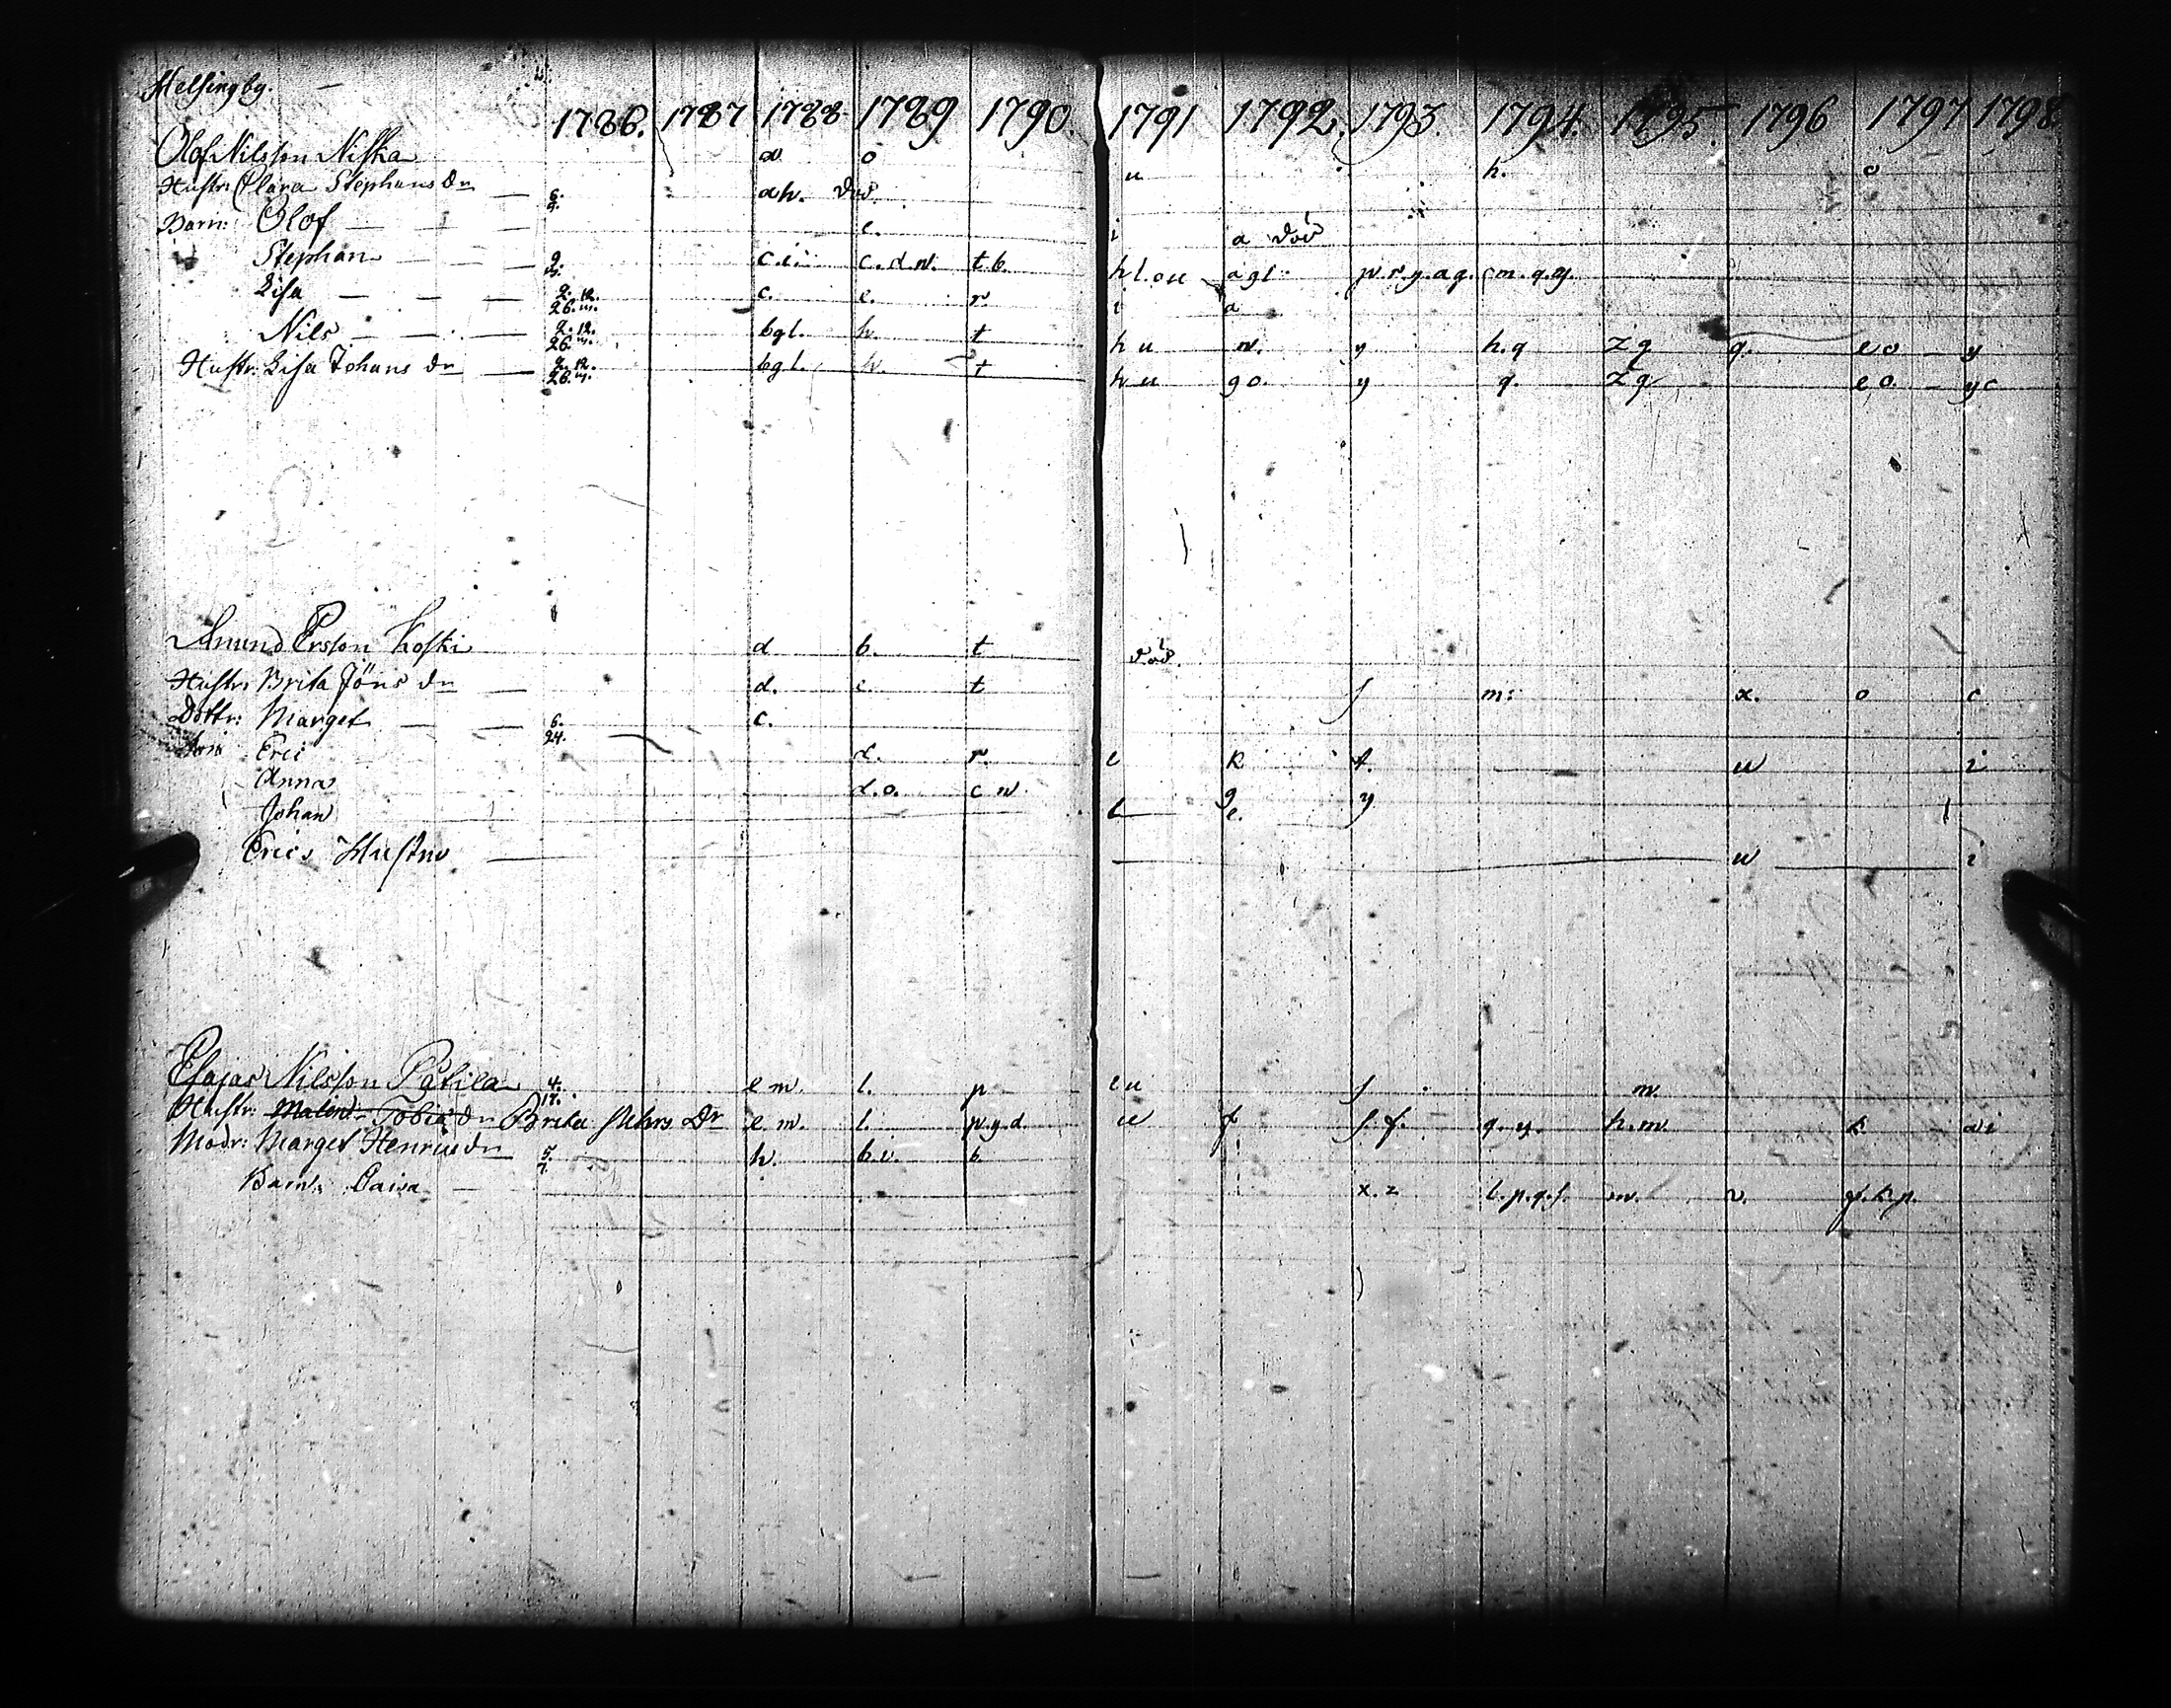 Helsingby.
1786. 1787 1788 1789 1790. 1791 1792. 1793. 1794. 1795 1796 1797 1798
Olof Nilsson Niska a o u h. o
Hustr: Clara Stephans dr 6. ah. död.
Barn: Olof e. i a död
Stephan 2. c.i. c.d.n. t.b. h l.ou agl p.r.y.ag. cm.q.y.
Lisa 2. 12. 26. c. e. r i a
Nils 2. 12. 26. bgl. h. t h u n. y h.q z q q. e o y
Hustr: Lisa Johans dr 2. 12. 26. bgl. h. t h u g o. y q. z q e o. y c
Anund Ersson Koski d b. t död.
Hustr: Brita Jöns dr d. e. t f m: x. o c
Dottr: Marget 6. 24. c.
Eric d. r. e k t. u i
Anna d.o. c n g y
Johan l e.
Erics Hustru u i
Esajas Nilsson Pätilä 4. 17. e m. l. p e u f m.
Hustr: Malin Tobiæ dr Brita Mårs Dr e m. l. p.y.d. u f f.f. q.y. h.m. k. a i
Modr: Marget Henricsdr 5. 7. h. b.i. b.
Barn: Caisa x.z l.p.q.f. m. v. f.k.p.